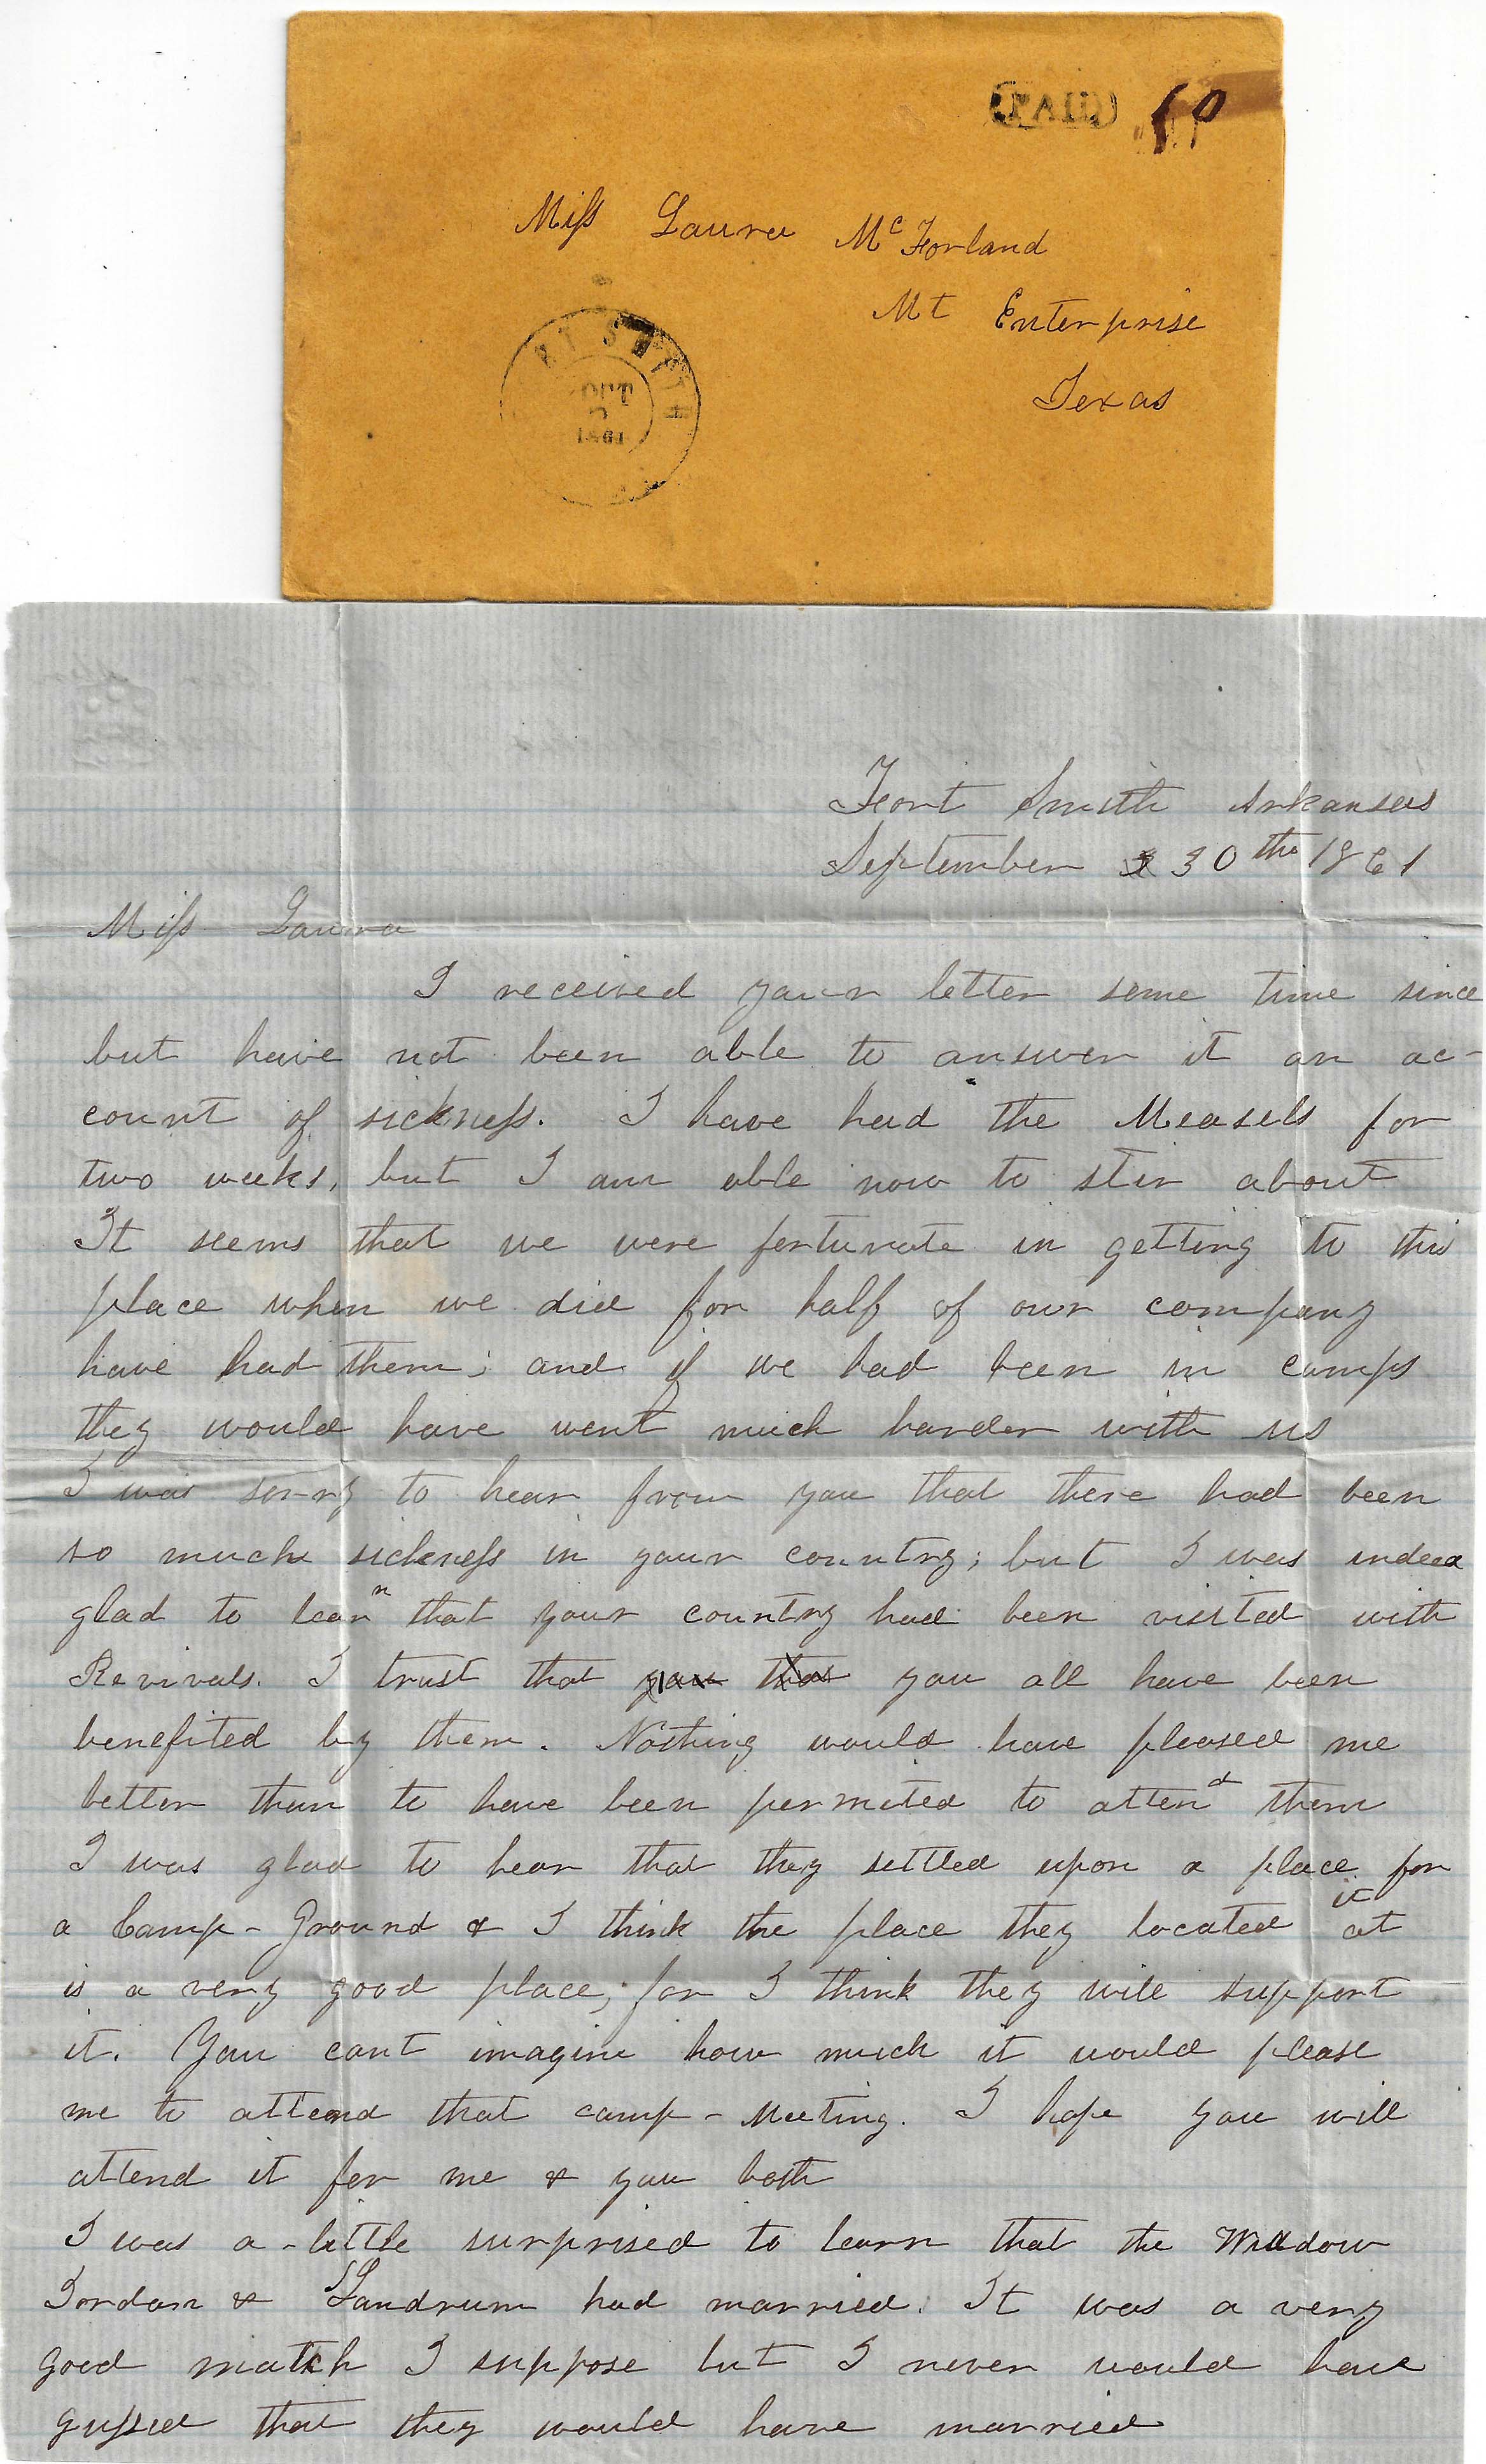 PAID 10
Miss Laura McForland
Mt Enterprise
Texas
FT SMITH
OCT
2
1861
Fort Smith Arkansas
September 30th 1861
Miss Laura
I received your letter some time since
but have not been able to answer it on ac-
count of sickness. I have had the Measels for
two weeks, but I am able now to stir about
It seems that we were fortunate in getting to this
place when we did for half of our company
have had them; and if we had been in camps
they would have went much harder with us
I was sorry to hear from you that there had been
so much sickness in your country; but I was indeed
glad to learn that your country had been visited with
Revivals. I trust that you that you all have been
benefited by them. Nothing would have pleased me
better than to have been permited to attend them
I was glad to hear that they settled upon a place for
a Camp-Ground & I think the place they located it at
is a very good place; for I think they will support
it. You cant imagine how much it would please
me to attend that camp-Meeting. I hope you will
attend it for me & you both
I was a-little surprised to learn that the Widdow
Jordan & Landrum had married. It was a very
good match I suppose but I never would have
gussed that they would have married